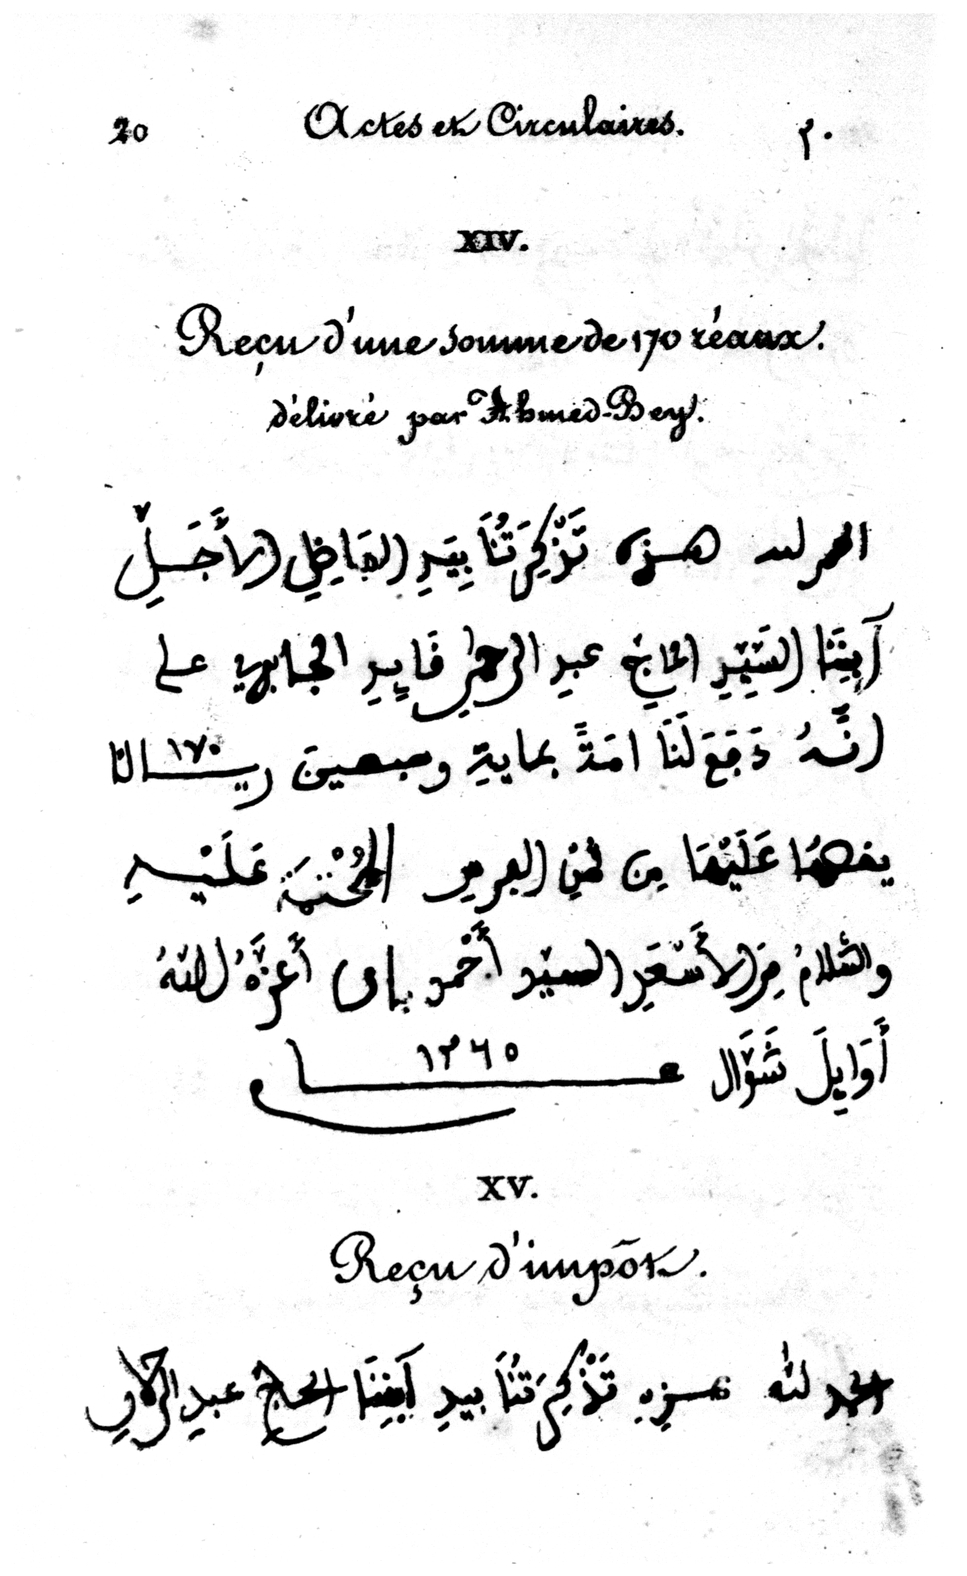 20 Actes et Circulaires. ٢٠
XIV.
Reçu d'une somme de 170 réaux.
délivré par Ahmed-Bey.
الحمد لله هذه تَذْكِرَتُنَا بِيَدِ الفَاضِلِ الأَجَلِّ
آبِنِنَا السَّيِّدِ الحَاجِّ عبدِ الرحمٰنِ قَايِدِ الجابري على
انَّهُ دَفَعَ لَنَا بمايةِ وسبعينَ ريالا ١٧٠
عَلَيْهَا مِن ثمنِ عَلَيْهِ
والسَّلامُ مِنَ الأَسْعَدِ السيّد أَحْمد باي أَعَزَّهُ اللهُ
أَوَايِلَ شَوَّال عام ١٢٦٥
XV.
Reçu d'impôt.
الحمد لله هذه تَذْكِرَتُنَا بيدِ آبنِنَا الحاجِّ عبدِ